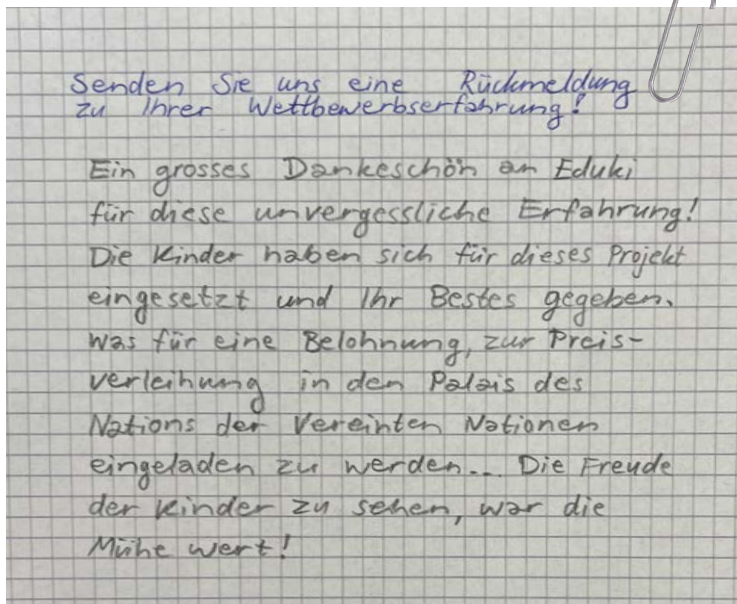 Senden Sie uns eine Rückmeldung
zu Ihrer Wettbewerbserfahrung!
Ein grosses Dankeschön an Eduki
für diese unvergessliche Erfahrung!
Die Kinder haben sich für dieses Projekt
eingesetzt und Ihr Bestes gegeben.
Was für eine Belohnung, zur Preis-
verleihung in den Palais des
Nations der Vereinten Nationen
eingeladen zu werden... Die Freude
der Kinder zu sehen, war die
Mühe wert!